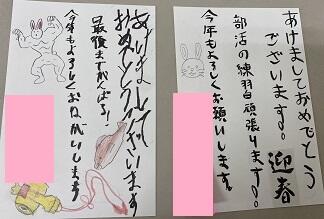 あけまして
おめでとうございます
最後までがんばろ!
今年もよろしくおねがいします
あけましておめでとう
ございます。
迎春
部活の練習白頑張ります。
今年もよろしくお願いします。